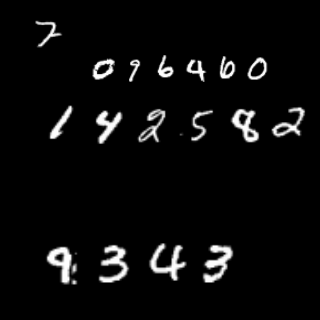 7
096460
142582
9343